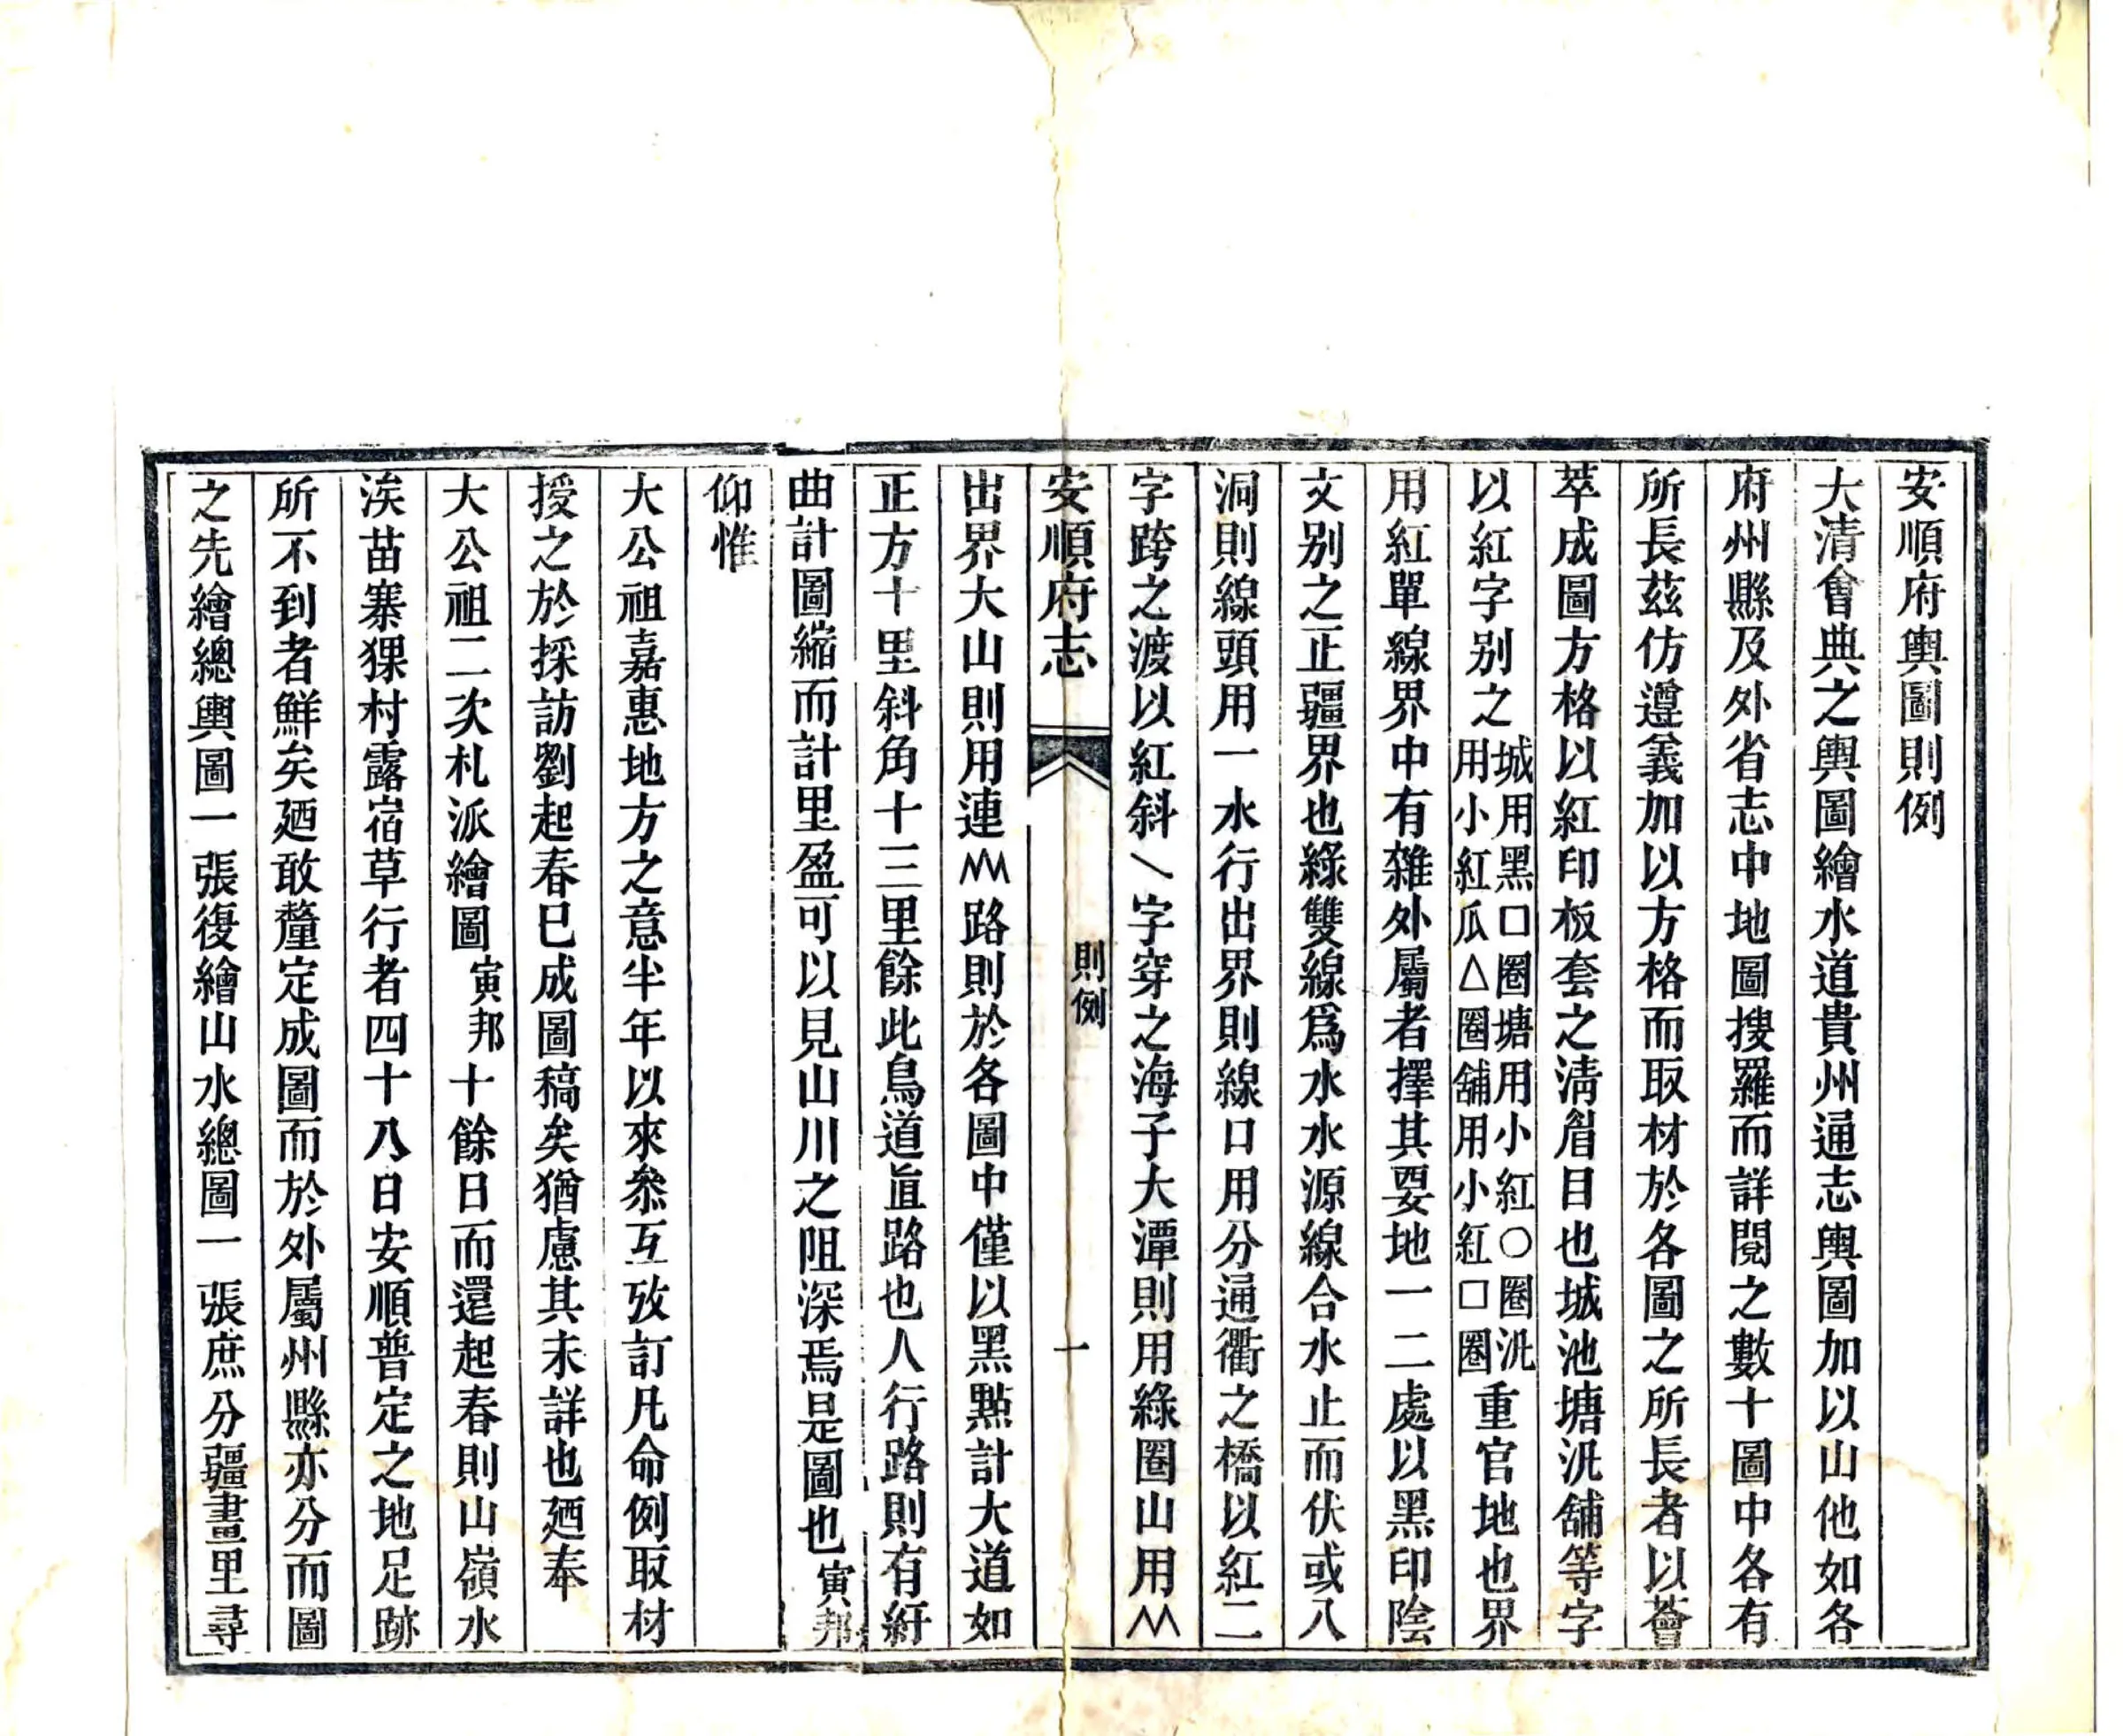 安順府輿圖則例
大清會典之輿圖繪水道貴州通志輿圖加以山他如各
府州縣及外省志中地圖搜羅而詳閱之數十圖中各有
所長茲仿遵義加以方格而取材於各圖之所長者以薈
萃成圖方格以紅印板套之淸眉目也城池塘汛舖等字
以紅字别之城用黑口圈塘用小紅○圈汛用小紅瓜△圈舖用小紅口圈重官地也界
用紅單線界中有雜外屬者擇其要地一二處以黑印陰
文别之正疆界也綠雙線爲水水源線合水止而伏或入
洞則線頭用一水行出界則線口用分通衢之橋以紅二
字跨之渡以紅斜㇏字穿之海子大潭則用綠圈山用𠆢𠆢
安順府志
則例
一
出界大山則用連𠆢𠆢𠆢路則於各圖中僅以黑點計大道如
正方十里斜角十三里餘此鳥道直路也人行路則有紆
曲計圖縮而計里盈可以見山川之阻深焉是圖也寅邦
仰惟
大公祖嘉惠地方之意半年以來叅互攷訂凡命例取材
授之於採訪劉起春巳成圖稿矣猶慮其未詳也廼奉
大公祖二次札派繪圖寅邦十餘日而還起春則山嶺水
涘苗寨猓村露宿草行者四十八日安順普定之地足跡
所不到者鮮矣廼敢釐定成圖而於外屬州縣亦分而圖
之先繪總輿圖一張復繪山水總圖一張庶分疆畫里尋